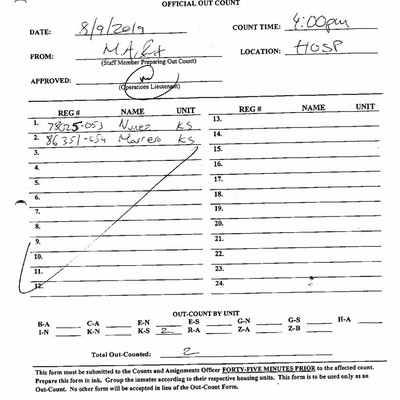 OFFICIAL OUT COUNT
DATE: 8/9/2019 COUNT TIME: 4:00pm
FROM: LOCATION: HOSP
(Staff Member Preparing Out Count)
APPROVED:
(Operations Lieutenant)
REG # NAME UNIT REG # NAME UNIT
1. Nunez KS 13.
2. 86351-054 Marrero KS 14.
3. 15.
4. 16.
5. 17.
6. 18.
7. 19.
8. 20.
9. 21.
10. 22.
11. 23.
12. 24.
OUT-COUNT BY UNIT
B-A C-A E-N E-S G-N G-S H-A
I-N K-N K-S 2 R-A Z-A Z-B
Total Out-Counted: 2
This form must be submitted to the Counts and Assignments Officer FORTY-FIVE MINUTES PRIOR to the affected count.
Prepare this form in ink. Group the inmates according to their respective housing units. This form is to be used only as an
Out-Count. No other form will be accepted in lieu of the Out-Count Form.